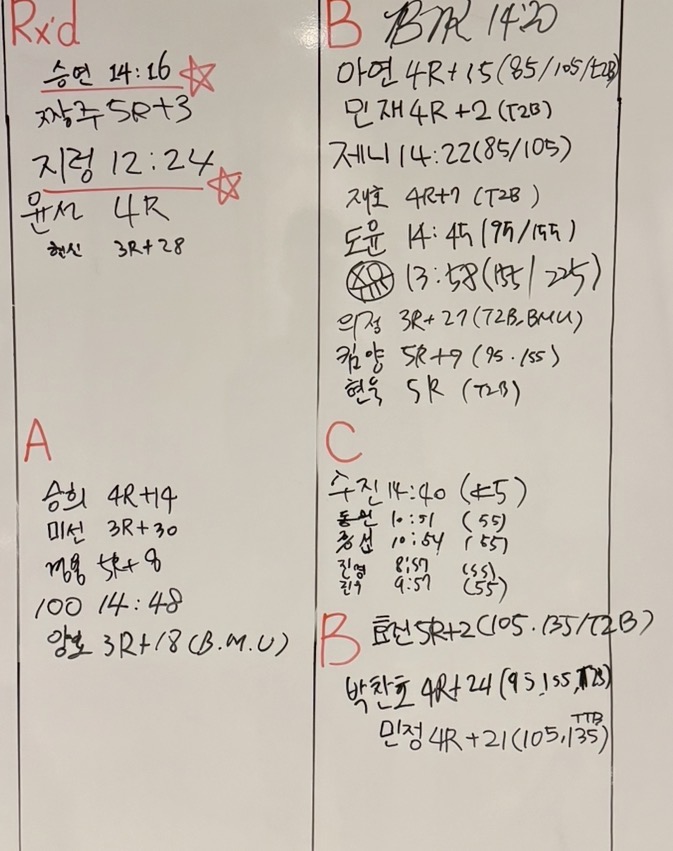 Rx'd
승연 14:16
짱주 5R+3
지렁 12:24
윤서 4R
현신 3R+28
A
승희 4R+14
미선 3R+30
5R+8
100 14:48
양호 3R+18 (B.M.U)
B 14:20
아연 4R+15 (85/105/T2B)
민재 4R+2 (T2B)
제니 14:22 (85/105)
재호 4R+7 (T2B)
도윤 14:45 (95/155)
13:58 (155/225)
의정 3R+27 (T2B, BMU)
킴양 5R+9 (95.155)
현욱 5R (T2B)
C
수진 14:40
동원 10:51 (55)
10:54 (55)
진영 8:57 (55)
9:57 (55)
B 효선 5R+2 (105.135/T2B)
박찬호 4R+24 (95,155,T2B)
민정 4R+21 (105,135) TTB